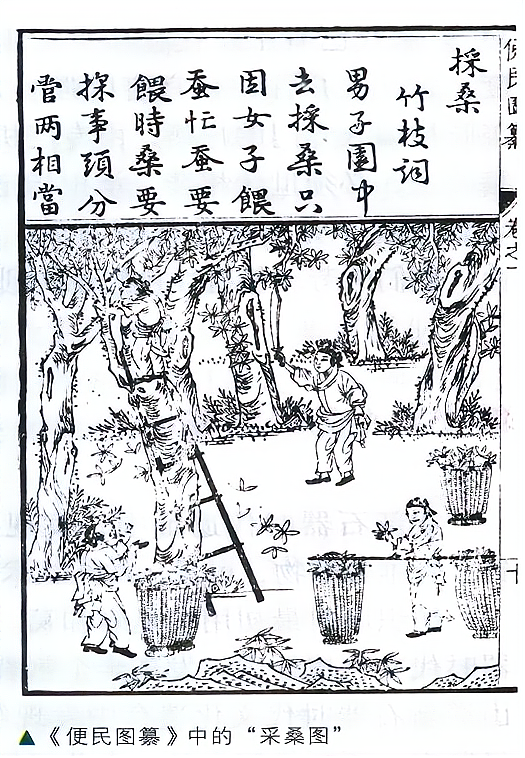 便民圖纂
卷之一
十
採桑
竹枝詞
男子園中
去採桑只
因女子餵
蚕忙蚕要
餵時桑要
採事頭分
當两相當
▲《便民图纂》中的“采桑图”